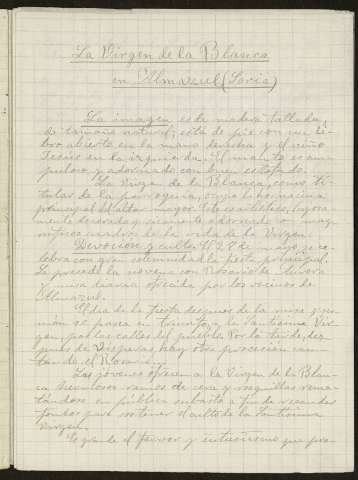 La Virgen de la Blanca
en Almazul (Soria)
La imagen, es de madera tallada,
de tamaño natural; está de pie con un li-
bro abierto en la mano derecha y el niño
Jesús en la izquierda. El manto es am-
puloso y adornado con buen estofado.
La Virgen de la Blanca, como ti-
tular de la parroquia, ocupa la hornacina
principal del altar mayor. Este es artístico, lujosa-
mente dorado y ricamente adornado con mag-
níficos cuadros de la vida de la Virgen.
Devoción y culto. El 28 de mayo se ce-
lebra con gran solemnidad la fiesta principal.
La precede la novena con Rosario de Aurora
y misa diaria ofrecida por los vecinos de
Almazul.
El día de la fiesta después de la misa y ser-
món se pasea en triunfo, a la Santísima Vir-
gen por las calles del pueblo. Por la tarde, des-
pués de Vísperas, hay otra procesión can-
tando el Rosario.
Los jóvenes ofrecen a la Virgen de la Blan-
ca ramos de cera y rosquillas rema-
tándose en pública subasta a fin de recaudar
fondos para sostener el culto de la Santísima
Virgen.
Es grande el fervor y entusiasmo que pro-